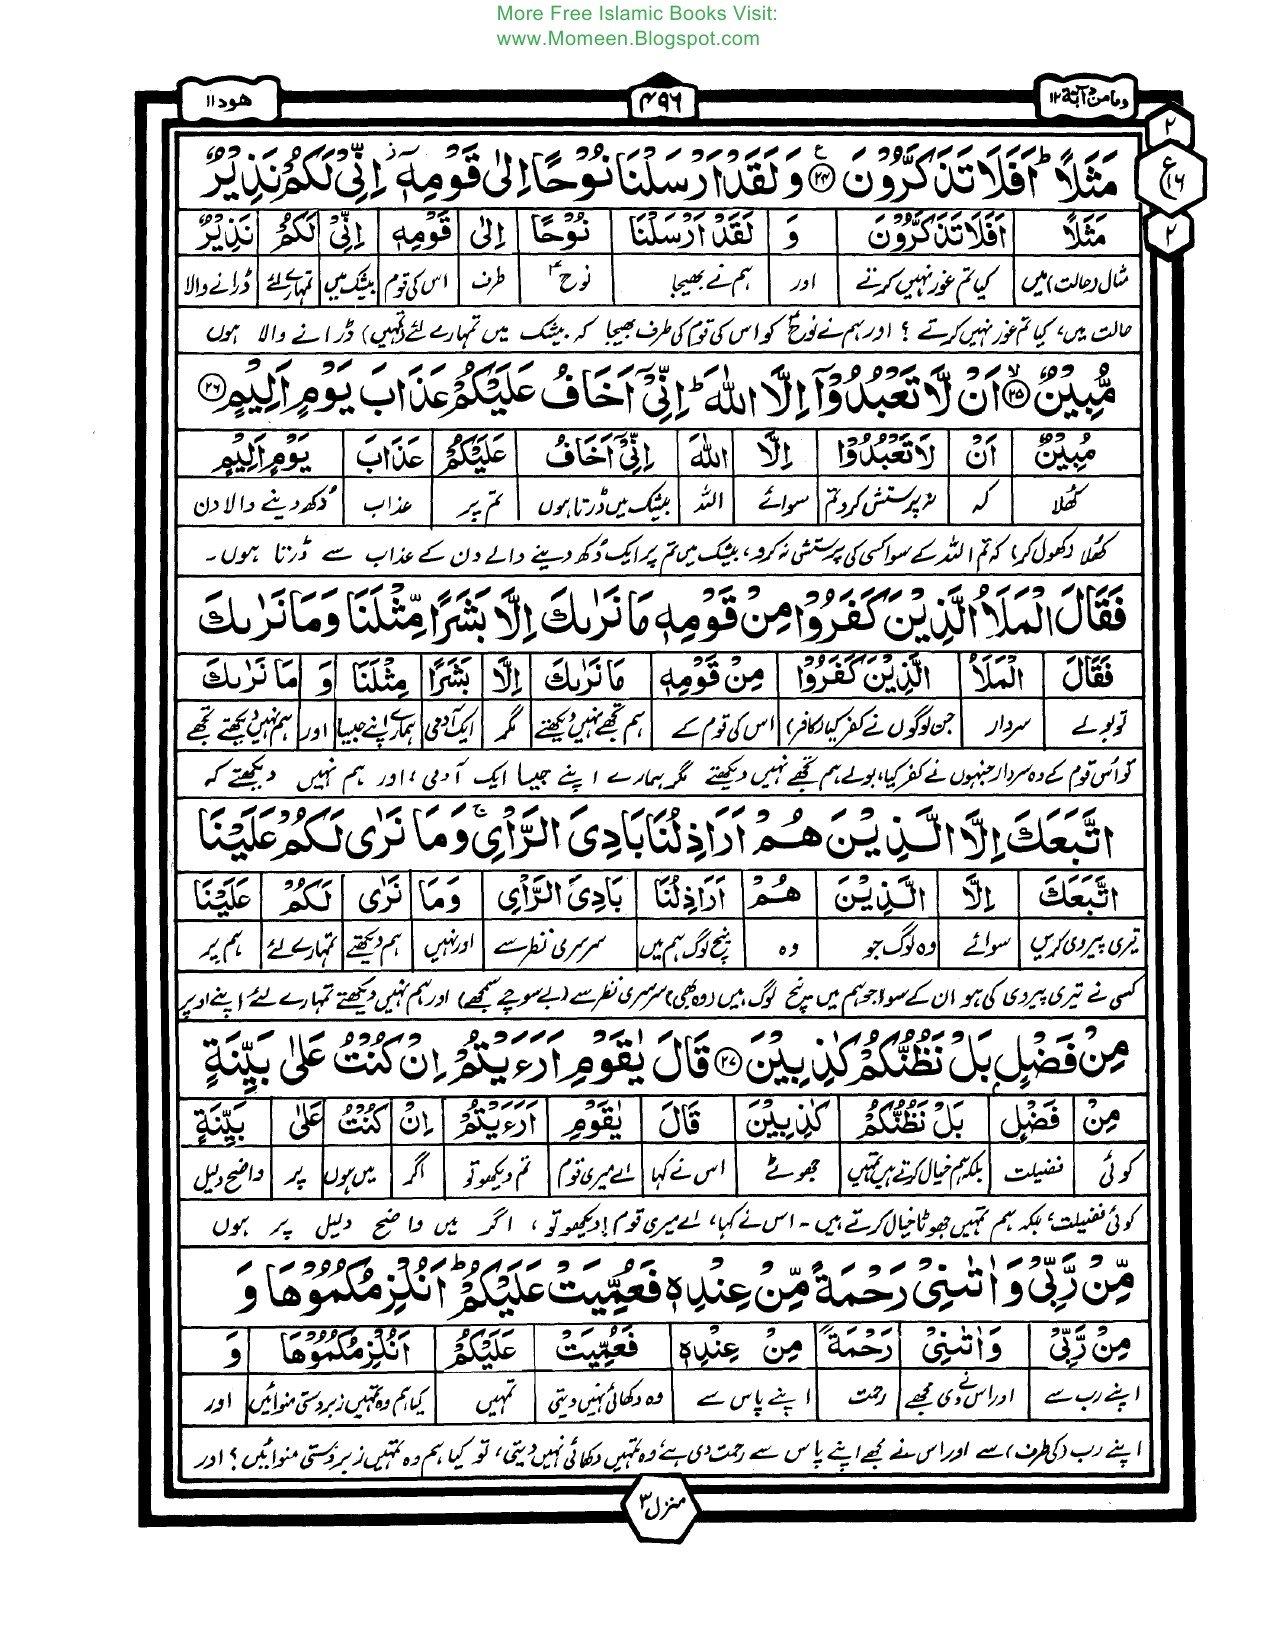 More Free Islamic Books Visit:
www.Momeen.Blogspot.com
وما من دآبة ١٢
۴۹۶
هود ۱۱
٢
ع ١٦
٢
مَثَلًا ؕ اَفَلَا تَذَكَّرُوْنَ ﴿۲۴﴾ وَ لَقَدْ اَرْسَلْنَا نُوْحًا اِلٰى قَوْمِهٖۤ ؗ اِنِّىْ لَكُمْ نَذِيْرٌ
مَثَلًا اَفَلَا تَذَكَّرُوْنَ وَ لَقَدْ اَرْسَلْنَا نُوْحًا اِلٰى قَوْمِهٖ اِنِّىْ لَكُمْ نَذِيْرٌ
مثال (حالت) میں کیا تم غور نہیں کرتے اور ہم نے بھیجا نوحؑ طرف اس کی قوم بیشک میں تمہارے لئے ڈرانے والا
حالت میں، کیا تم غور نہیں کرتے ؟ اور ہم نے نوحؑ کو اس کی قوم کی طرف بھیجا کہ بیشک میں تمہارے لئے (تمہیں) ڈرانے والا ہوں
مُّبِيْنٌ ﴿۲۵﴾ اَنْ لَّا تَعْبُدُوْۤا اِلَّا اللّٰهَ ؕ اِنِّىْۤ اَخَافُ عَلَيْكُمْ عَذَابَ يَوْمٍ اَلِيْمٍ ﴿۲۶﴾
مُبِيْنٌ اَنْ لَا تَعْبُدُوْا اِلَّا اللّٰهَ اِنِّىْۤ اَخَافُ عَلَيْكُمْ عَذَابَ يَوْمٍ اَلِيْمٍ
کھُلا کہ نہ پرستش کرو تم سوائے اللہ بیشک میں ڈرتا ہوں تم پر عذاب دُکھ دینے والا دن
کھُلا (کھول کر) کہ تم اللہ کے سوا کسی کی پرستش نہ کرو، بیشک میں تم پر ایک دُکھ دینے والے دن کے عذاب سے ڈرتا ہوں۔
فَقَالَ الْمَلَاُ الَّذِيْنَ كَفَرُوْا مِنْ قَوْمِهٖ مَا نَرٰىكَ اِلَّا بَشَرًا مِّثْلَنَا وَمَا نَرٰىكَ
فَقَالَ الْمَلَاُ الَّذِيْنَ كَفَرُوْا مِنْ قَوْمِهٖ مَا نَرٰىكَ اِلَّا بَشَرًا مِثْلَنَا وَ مَا نَرٰىكَ
تو بولے سردار جن لوگوں نے کفر کیا (کافر) اس کی قوم کے ہم تجھے نہیں دیکھتے مگر ایک آدمی ہمارے اپنے جیسا اور ہم نہیں دیکھتے تجھے
تو اُس قوم کے وہ سردار جنہوں نے کفر کیا، بولے ہم تجھے نہیں دیکھتے مگر ہمارے اپنے جیسا ایک آدمی، اور ہم نہیں دیکھتے کہ
اتَّبَعَكَ اِلَّا الَّذِيْنَ هُمْ اَرَاذِلُنَا بَادِىَ الرَّاْىِ ۚ وَمَا نَرٰى لَكُمْ عَلَيْنَا
اتَّبَعَكَ اِلَّا الَّذِيْنَ هُمْ اَرَاذِلُنَا بَادِىَ الرَّاْىِ وَمَا نَرٰى لَكُمْ عَلَيْنَا
تیری پیروی کریں سوائے وہ لوگ جو وہ نیچ لوگ ہم میں سرسری نظر سے اور نہیں ہم دیکھتے تمہارے لئے ہم پر
کسی نے تیری پیروی کی ہو ان کے سوا جو ہم میں نیچ لوگ ہیں (وہ بھی) سرسری نظر سے (بے سوچے سمجھے) اور ہم نہیں دیکھتے تمہارے لئے اپنے اوپر
مِنْ فَضْلٍۭ بَلْ نَظُنُّكُمْ كٰذِبِيْنَ ﴿۲۷﴾ قَالَ يٰقَوْمِ اَرَءَيْتُمْ اِنْ كُنْتُ عَلٰى بَيِّنَةٍ
مِنْ فَضْلٍ بَلْ نَظُنُّكُمْ كٰذِبِيْنَ قَالَ يٰقَوْمِ اَرَءَيْتُمْ اِنْ كُنْتُ عَلٰى بَيِّنَةٍ
کوئی فضیلت بلکہ ہم خیال کرتے ہیں تمہیں جھوٹے اس نے کہا اے میری قوم تم دیکھو تو اگر میں ہوں پر واضح دلیل
کوئی فضیلت، بلکہ ہم تمہیں جھوٹا خیال کرتے ہیں۔ اس نے کہا، اے میری قوم! دیکھو تو، اگر میں واضح دلیل پر ہوں
مِّنْ رَّبِّىْ وَ اٰتٰىنِىْ رَحْمَةً مِّنْ عِنْدِهٖ فَعُمِّيَتْ عَلَيْكُمْ ؕ اَنُلْزِمُكُمُوْهَا وَ
مِنْ رَّبِّىْ وَاٰتٰىنِىْ رَحْمَةً مِنْ عِنْدِهٖ فَعُمِّيَتْ عَلَيْكُمْ اَنُلْزِمُكُمُوْهَا وَ
اپنے رب سے اور اس نے دی مجھے رحمت اپنے پاس سے وہ دکھائی نہیں دیتی تمہیں کیا ہم وہ تمہیں زبردستی منوائیں اور
اپنے رب (کی طرف) سے اور اس نے مجھے اپنے پاس سے رحمت دی ہے، وہ تمہیں دکھائی نہیں دیتی، تو کیا ہم وہ تمہیں زبردستی منوائیں؟ اور
منزل ۳